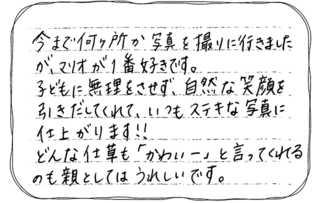 今まで何ヶ所か写真を撮りに行きました
が、マリオが1番好きです。
子どもに無理をさせず、自然な笑顔を
引きだしてくれて、いつもステキな写真に
仕上がります!!
どんな仕草も「かわいー」と言ってくれてる
のも親としてはうれしいです。